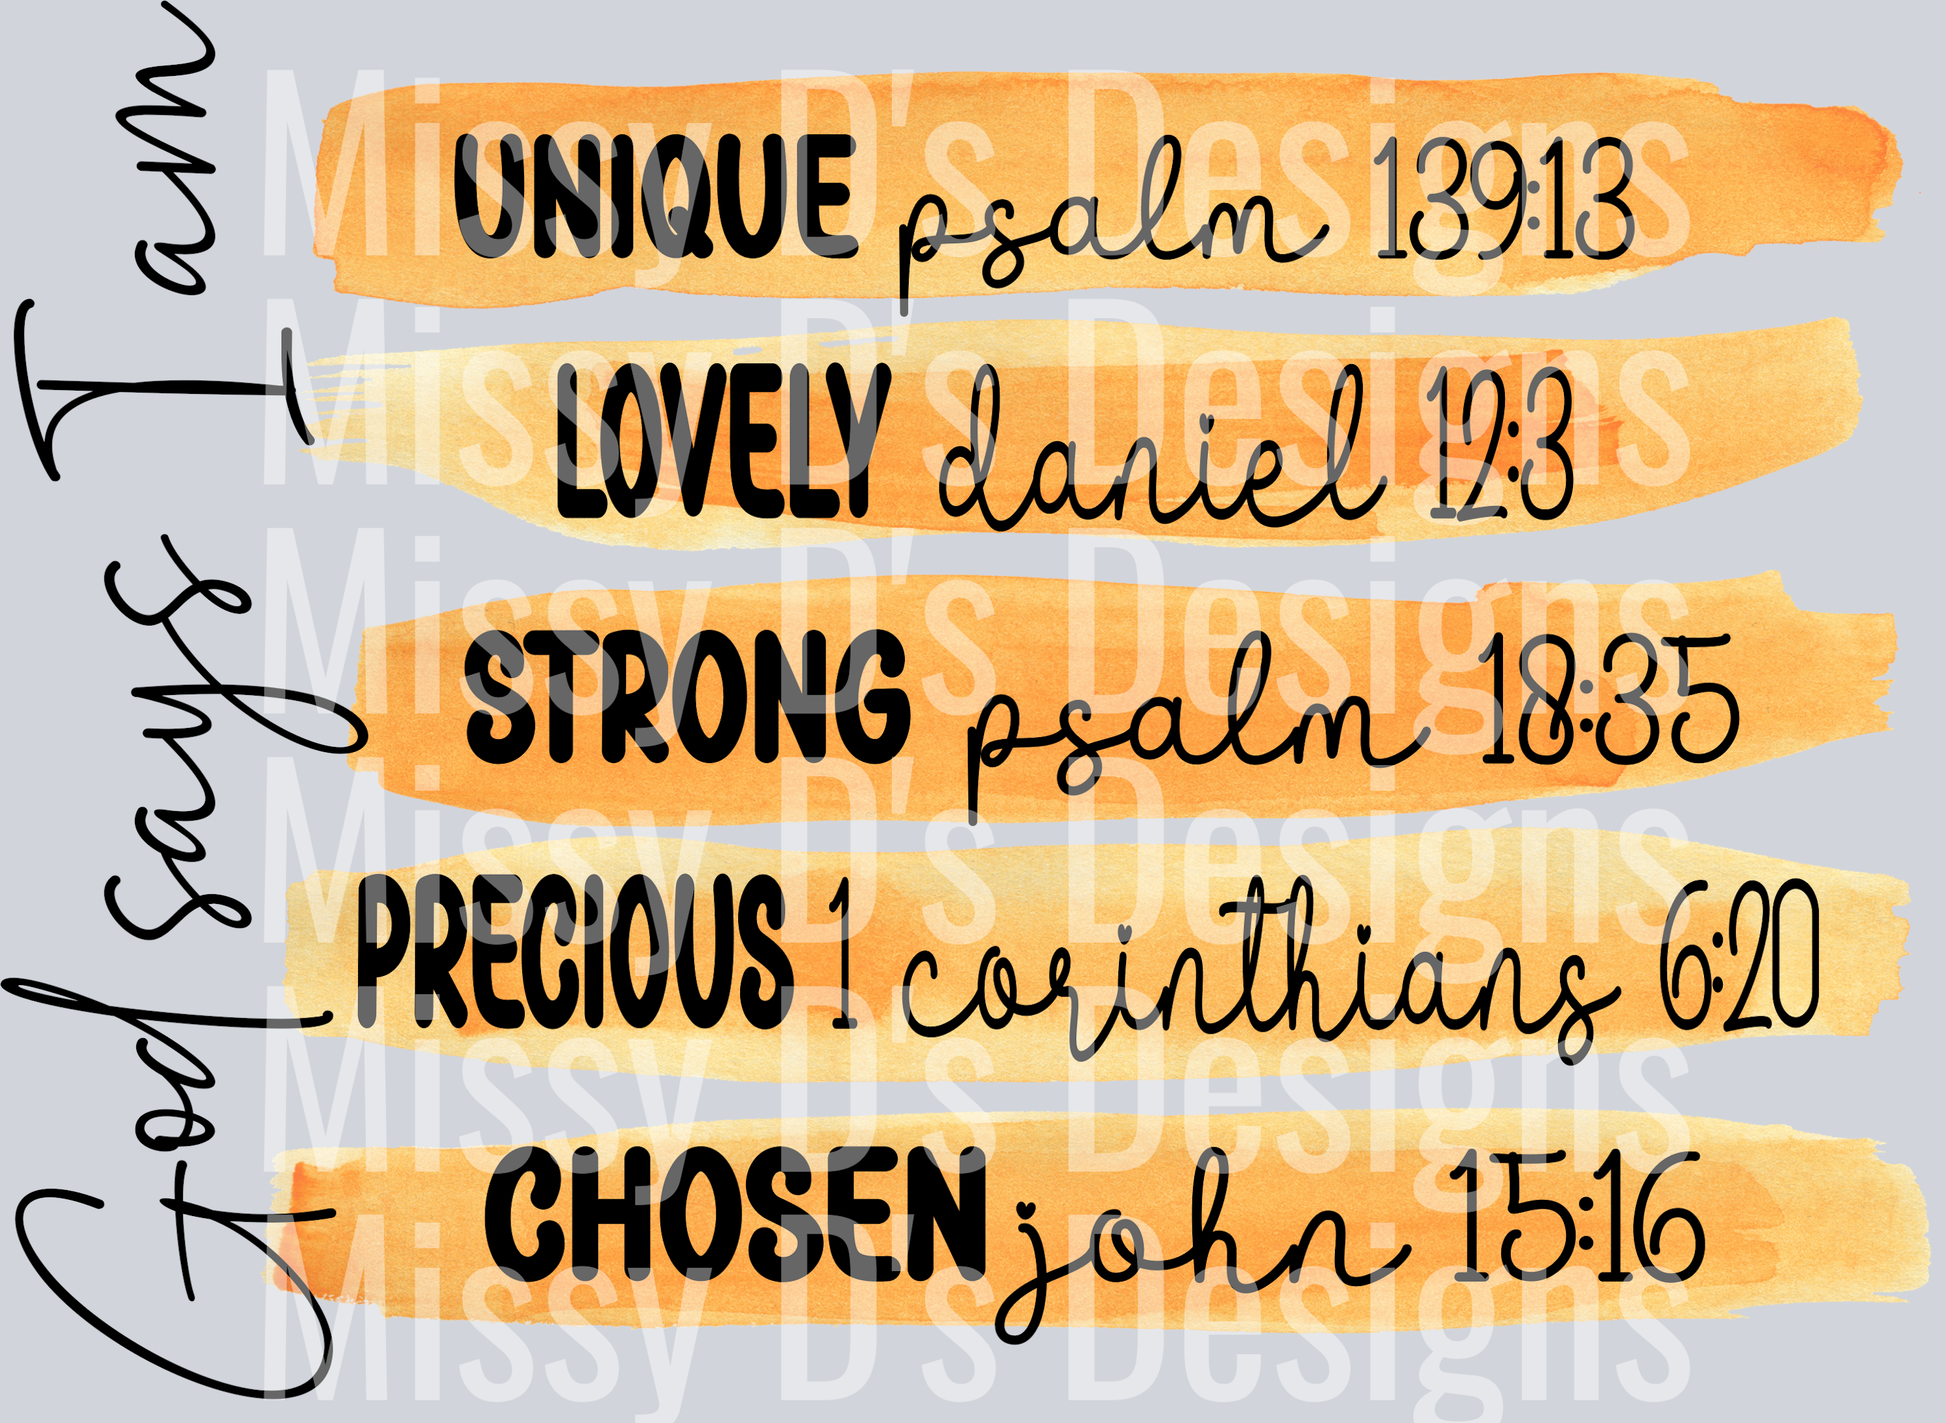 God says I am
UNIQUE psalm 139:13
LOVELY daniel 12:3
STRONG psalm 18:35
PRECIOUS 1 corinthians 6:20
CHOSEN john 15:16
Missy D's Designs
Missy D's Designs
Missy D's Designs
Missy D's Designs
Missy D's Designs
Missy D's Designs